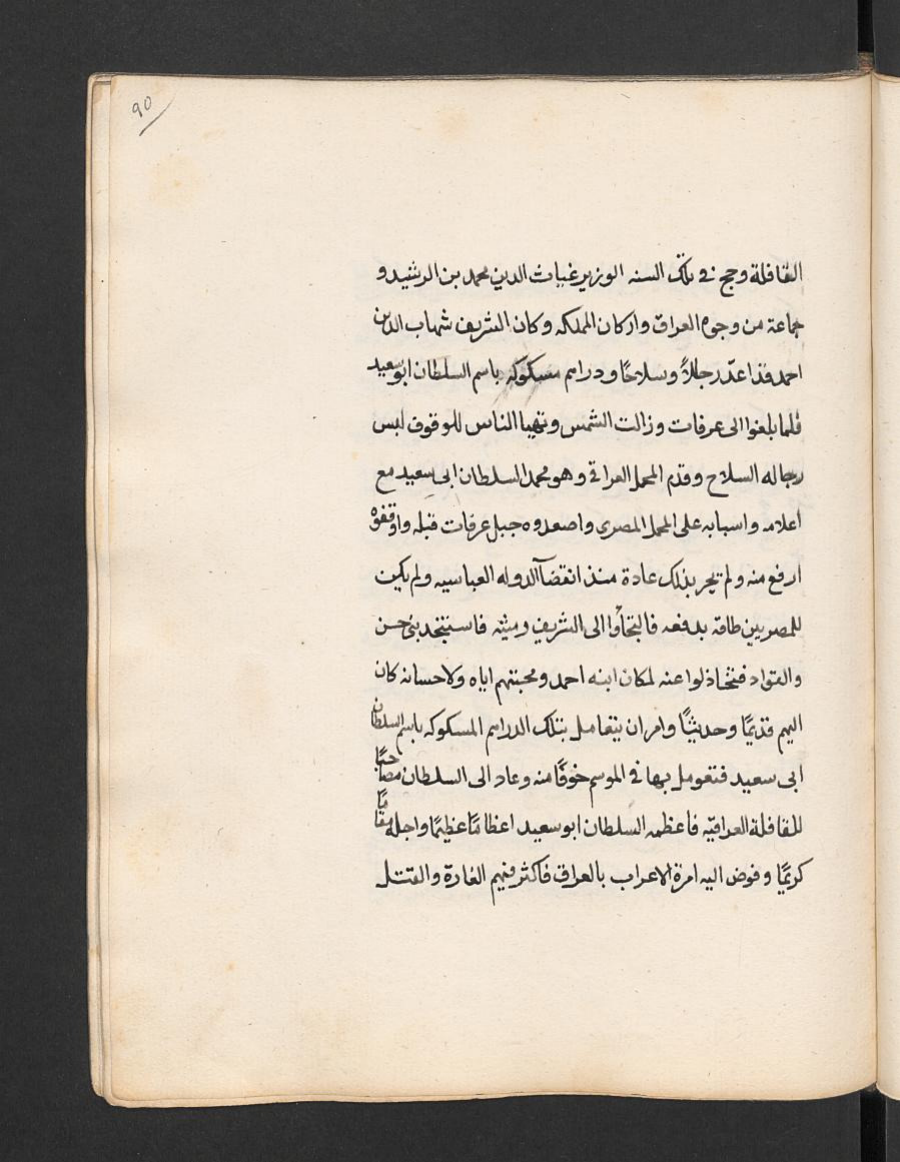 90
القافلة وحج في تلك السنه الوزير غياث الدين محمد بن الرشيد و
جماعة من وجوه العراق واركان المملكه وكان الشريف شهاب الدين
احمد قد اعدّ رجالاً وسلاحًا ودراهم مسكوكه باسم السلطان ابو سعيد
فلما بلغوا الى عرفات وزالت الشمس وتهيا الناس للوقوف لبس
رجاله السلاح وقدم المحمل العراقي وهو محمل السلطان ابى سعيد مع
اعلامه واسبابه على المحمل المصرى واصعدوه جبل عرفات قبله واوقفوه
ارفع منه ولم تجر بذلك عادة منذ انقضآ الدوله العباسيه ولم يكن
للمصريين طاقه بدفعه فالتجأوا الى الشريف رميثه فاستنجد بنى حسن
والقواد فتخاذلوا عنه لمكان ابنه احمد ومحبتهم اياه ولاحسانه كان
اليهم قديمًا وحديثًا وامر ان يتعامل بتلك الدراهم المسكوكه باسم السلطان
ابى سعيد فتعومل بها في الموسم خوفًا منه وعاد الى السلطان مصاحبًا
للقافلة العراقيّه فاعظمه السلطان ابو سعيد اعظامًا عظيمًا واجله مقامًا
كريمًا وفوض اليه امرة الاعراب بالعراق فاكثر فيهم الغارة والقتل